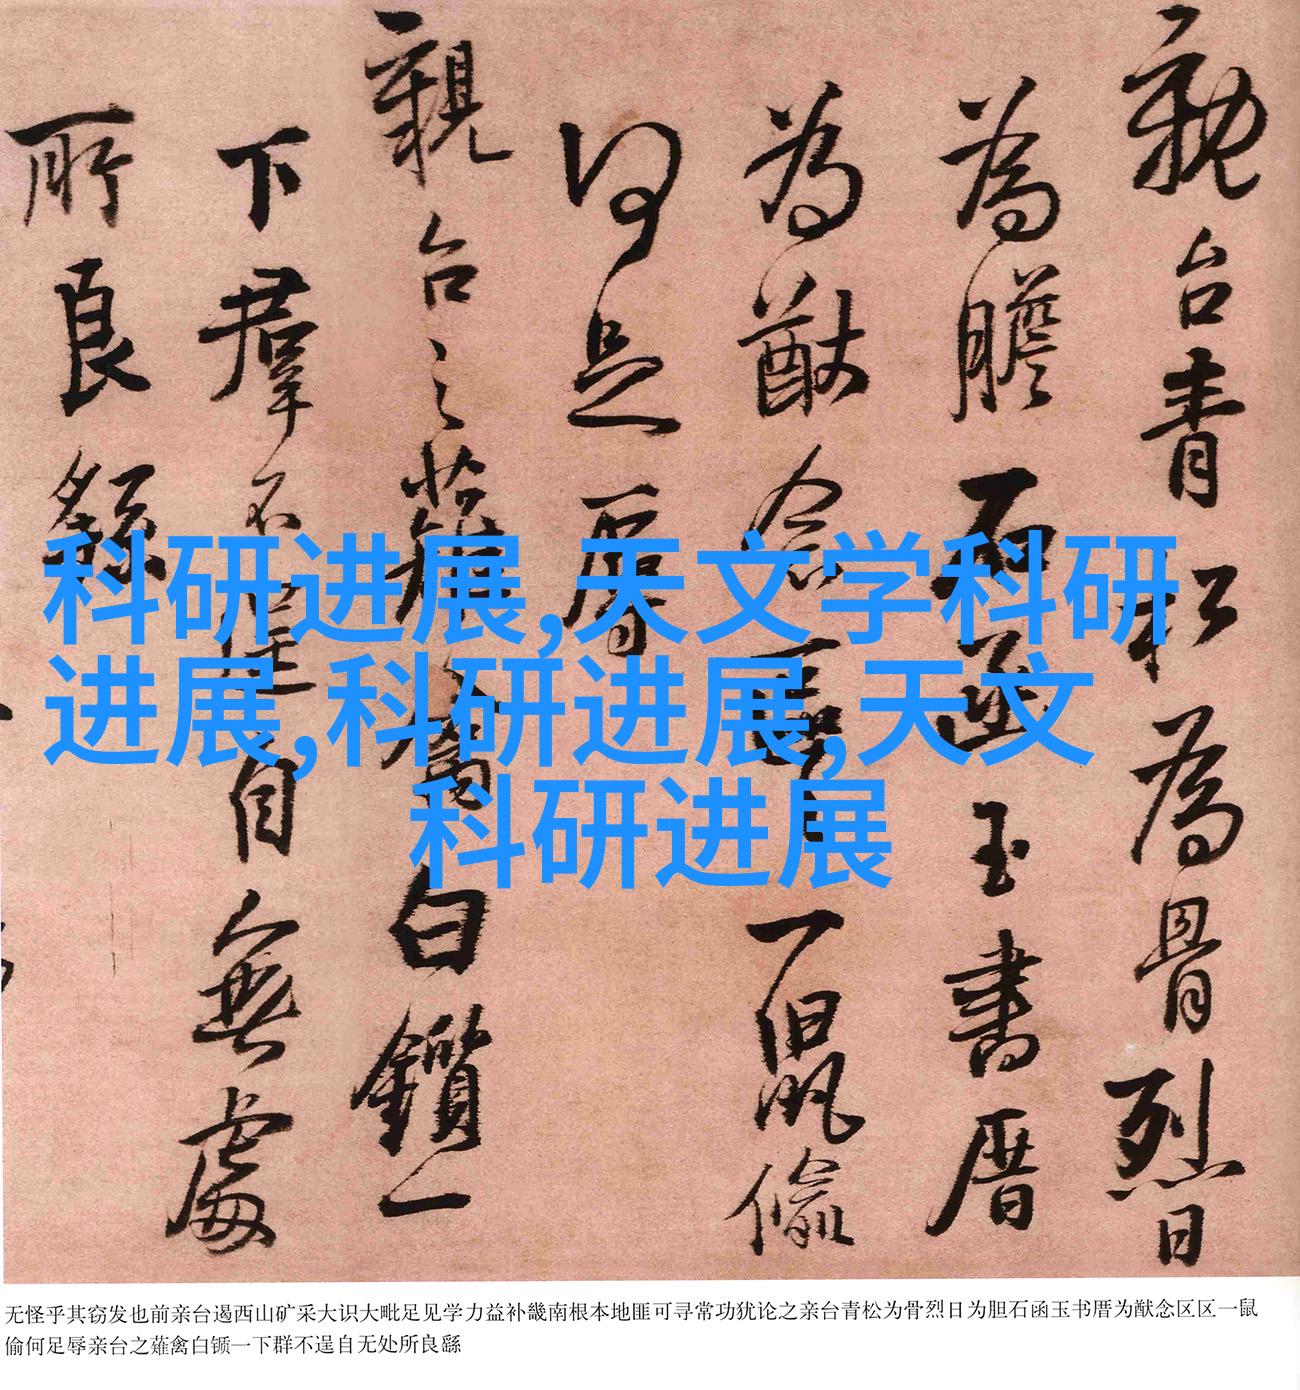 親台青松為骨烈日
為膽石函玉書厝
為猷念區區一鼠偷
何足辱
親台之薙禽白鑕一
下羣不逞自無處
所良繇
科研进展,天文学科研
进展,科研进展,天文
科研进展
无怪乎其窃发也前亲台遏西山矿采大识大毗足见学力益补畿南根本地匪可寻常功犹论之亲台青松为骨烈日为胆石函玉书厝为猷念区区一鼠
偷何足辱亲台之薙禽白锧一下群不逞自无处所良繇